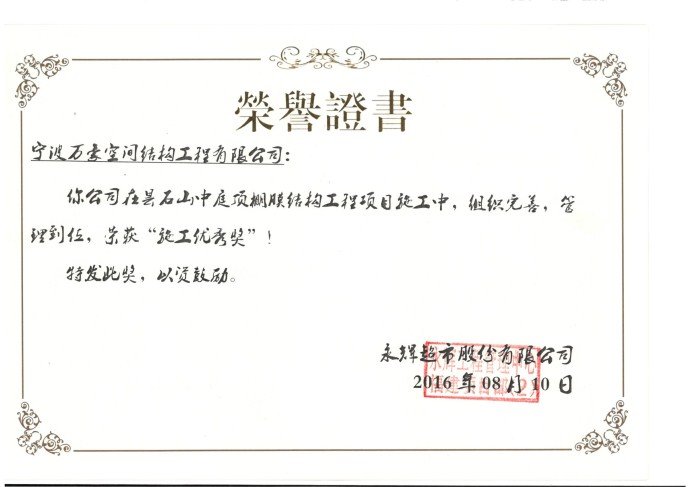 榮譽證書
宁波万豪空间结构工程有限公司：
你公司在昙石山中庭顶棚膜结构工程项目施工中，组织完善，管
理到位，荣获“施工优秀奖”！
特发此奖，以资鼓励。
永辉超市股份有限公司
永辉工程管理中心
2016 年 08 月 10 日